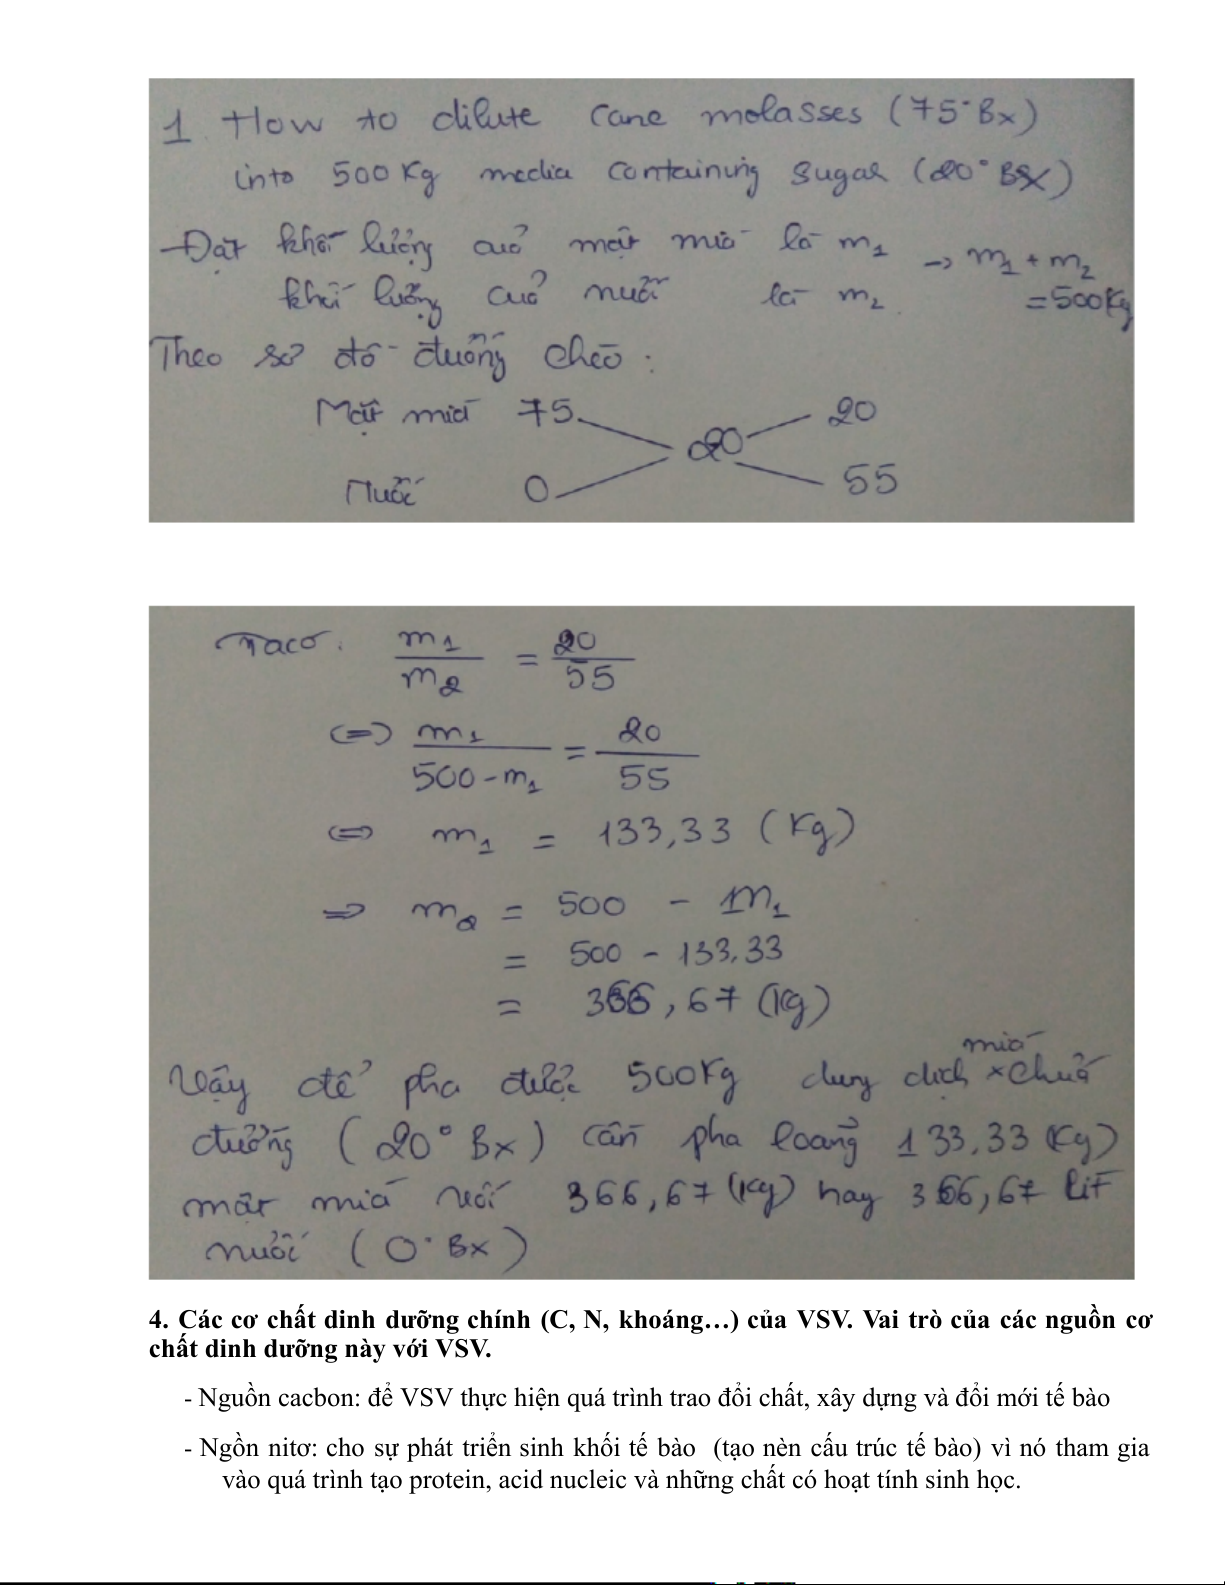 1. How to dilute cane molasses (75°Bx)
into 500 Kg media containing sugar (20°Bx)
- Đặt khối lượng của mật mía là m1 → m1 + m2
khối lượng của nước là m2. = 500Kg
Theo sơ đồ đường chéo :
Mật mía 75 20
20
Nước 0 55
Ta có: m1/m2 = 20/55
(=) m1/500-m1 = 20/55
(=) m1 = 133,33 (Kg)
=> m2 = 500 - m1
= 500 - 133,33
= 366,67 (Kg)
mía
Vậy để pha được 500Kg dung dịch × chứa
đường (20°Bx) cần pha loãng 133,33 (Kg)
mật mía với 366,67 (Kg) hay 366,67 lít
nước (0°Bx)
4. Các cơ chất dinh dưỡng chính (C, N, khoáng…) của VSV. Vai trò của các nguồn cơ
chất dinh dưỡng này với VSV.
- Nguồn cacbon: để VSV thực hiện quá trình trao đổi chất, xây dựng và đổi mới tế bào
- Ngồn nitơ: cho sự phát triển sinh khối tế bào (tạo nèn cấu trúc tế bào) vì nó tham gia
vào quá trình tạo protein, acid nucleic và những chất có hoạt tính sinh học.